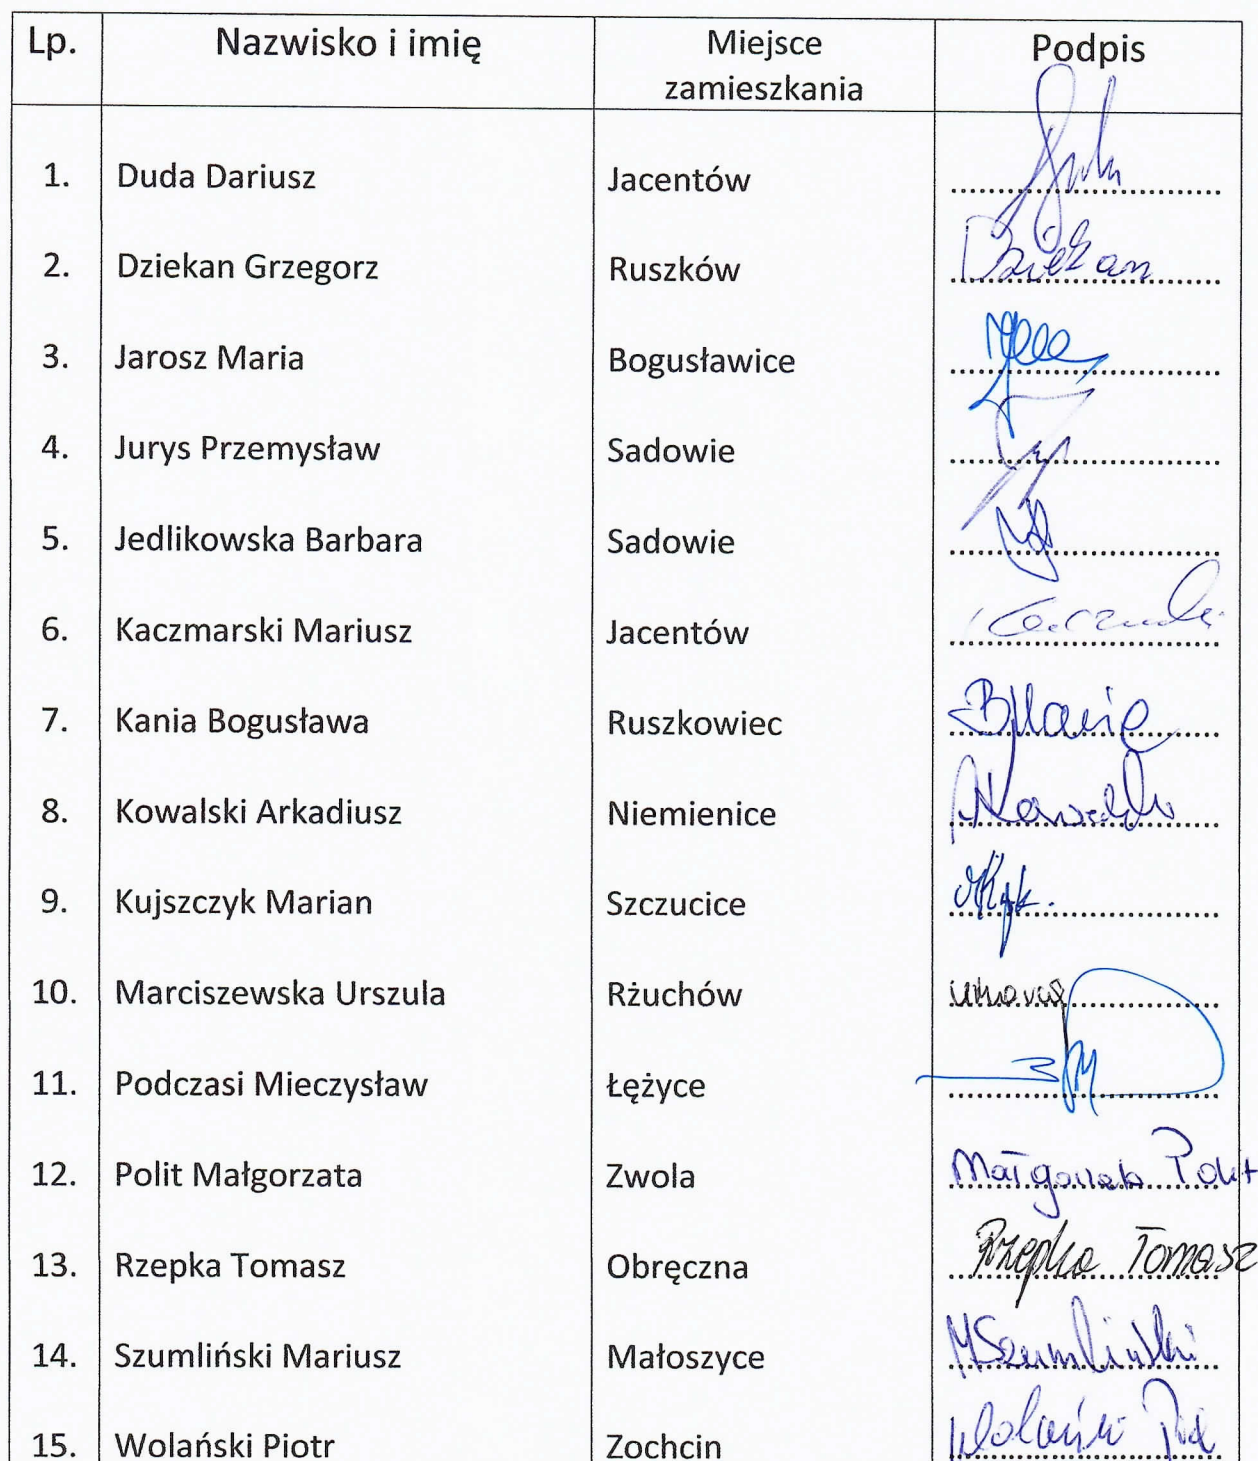 Lp. Nazwisko i imię Miejsce zamieszkania Podpis
1. Duda Dariusz Jacentów
2. Dziekan Grzegorz Ruszków Dziekan
3. Jarosz Maria Bogusławice
4. Jurys Przemysław Sadowie
5. Jedlikowska Barbara Sadowie
6. Kaczmarski Mariusz Jacentów
7. Kania Bogusława Ruszkowiec BKania
8. Kowalski Arkadiusz Niemienice AKowalski
9. Kujszczyk Marian Szczucice
10. Marciszewska Urszula Rżuchów
11. Podczasi Mieczysław Łężyce
12. Polit Małgorzata Zwola Małgorzata Polit
13. Rzepka Tomasz Obręczna Rzepka Tomasz
14. Szumliński Mariusz Małoszyce MSzumliński
15. Wolański Piotr Zochcin Wolański